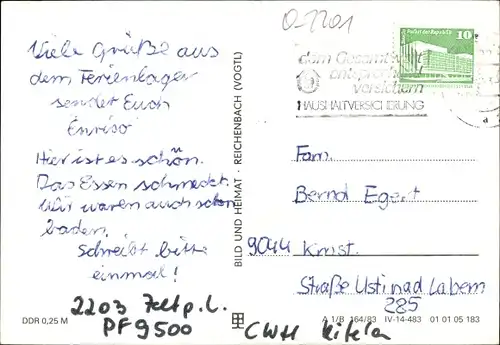 O-2201
Palast der Republik
10
dem Gesamt
entsprechend
versichern
HAUSHALTVERSICHERUNG
Viele Grüße aus
dem Ferienlager
sendet Euch
Enrico
Hier ist es schön.
Das Essen schmeckt.
Wir waren auch schon
baden.
Schreibt bitte
einmal!
BILD UND HEIMAT · REICHENBACH (VOGTL)
Fam.
Bernd Egert
9044 Kmst.
Straße Usti nad Labem
285
2203
PF 9500
DDR 0,25 M
A 1/B 164/83 IV-14-483 01 01 05 183